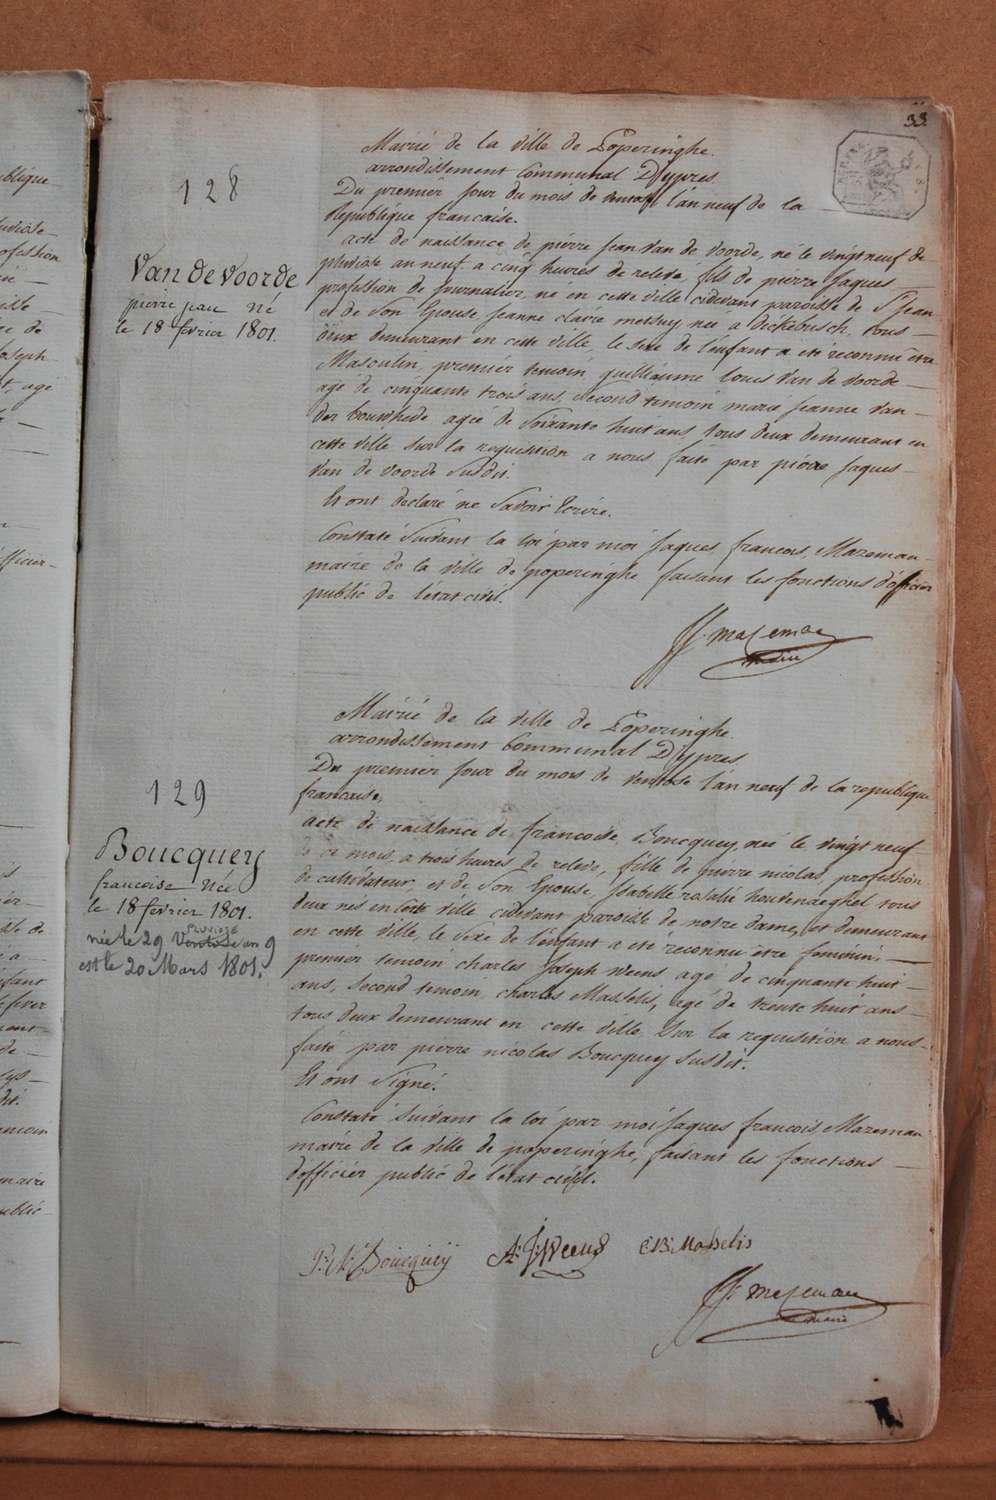 33.
128
Van de Voorde
pierre jean né
le 18 fevrier 1801.
Mairié de la ville de Poperinghe.
arrondissement Communal D'ypres
Du premier jour du mois de ventose l'an neuf de la
République francaise.
acte de naissance de pierre Jean Van de Voorde, né le vingt neuf de
pluviose an neuf a cinq heures de relevé, fils de pierre Jaques
profession de Journalier, né en cette ville cidevant paroisse de St Jean
et de Son Epouse Jeanne claire née a Dickebusch, tous
deux demeurant en cette ville, le sexe de l'enfant a été reconnu être
Masculin, premier temoin guilleaume louis Van de Voorde
agé de cinquante trois ans, Second temoin marie Jeanne Van-
der bouwhede ageé de Soixante huit ans tous deux demeurant en
cette ville Sur la requisition a nous faite par pierre Jaques
Van de Voorde Susdit.
Et ont declaré ne Savoir Ecrire.
Constaté Suivant la loi par moi Jaques francois Mazeman
maire de la ville de poperinghe faisant les fonctions d'officier
public de l'état civil.
JJ. Mazeman
maire
129
Boucquey
francoise Née
le 18 fevrier 1801.
née le 29 Ventose an 9
PLUVIOSE
est le 20 Mars 1801.
Mairié de la ville de Poperinghe.
arrondissement Communal D'ypres
Du premier Jour du mois de Ventose l'an neuf de la republique
francaise,
acte de naissance de francoise Boucquey, née le vingt neuf
de ce mois, a trois heures de relevé, fille de pierre nicolas, profession
de cultivateur, et de Son Epouse Isabelle rosalie houvenaeghel tous
deux nés en Cette ville cidevant paroisse de notre dame, et demeurant
en cette ville, le Sexe de l'enfant a eté reconnu être feminin.
premier temoin charles Joseph Weens agé de cinquante huit
ans, Second temoin charles Masselis, agé de trente huit ans
tous deux demeurant en cette ville Sur la requisition a nous
faite par pierre nicolas Boucquey Susdit.
Et ont Signé.
Constaté Suivant la loi par moi Jaques francois Mazeman
maire de la ville de poperinghe, faisant les fonctions
d'officier public de l'état civil.
P: N: Boucqueÿ
C: B: Masselis
JJ: Mazeman
maire